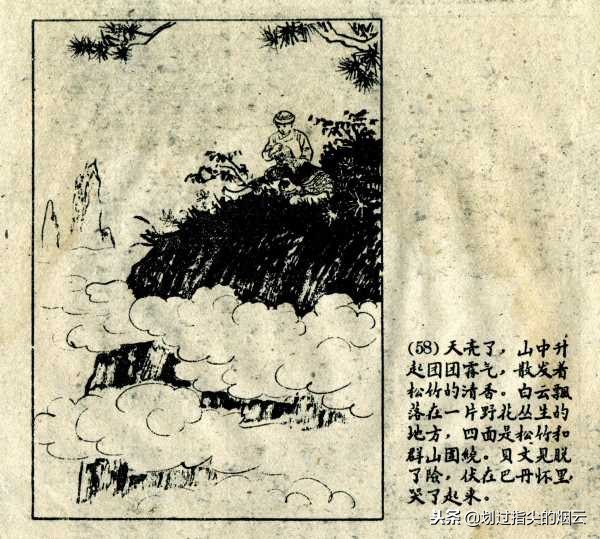 (58) 天亮了，山中升
起团团雾气，散发着
松竹的清香。白云飘
落在一片野花丛生的
地方，四面是松竹和
群山围绕。贝文见脱
了险，伏在巴丹怀里
哭了起来。
头条 @划过指尖的烟云